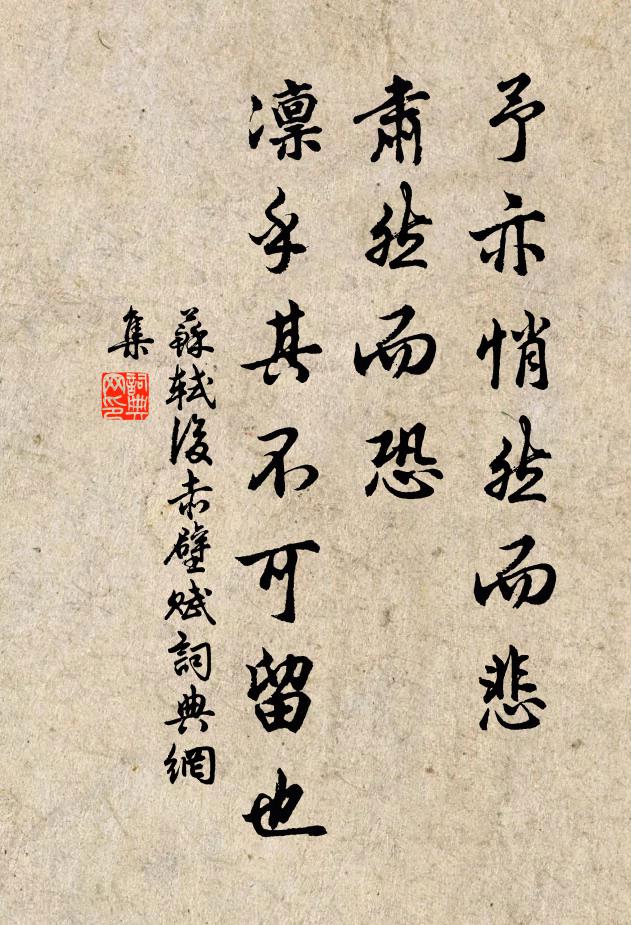 予亦悄然而悲
肅然而恐
凛乎其不可留也
蘇軾後赤壁賦詞典網
集
詞典网印